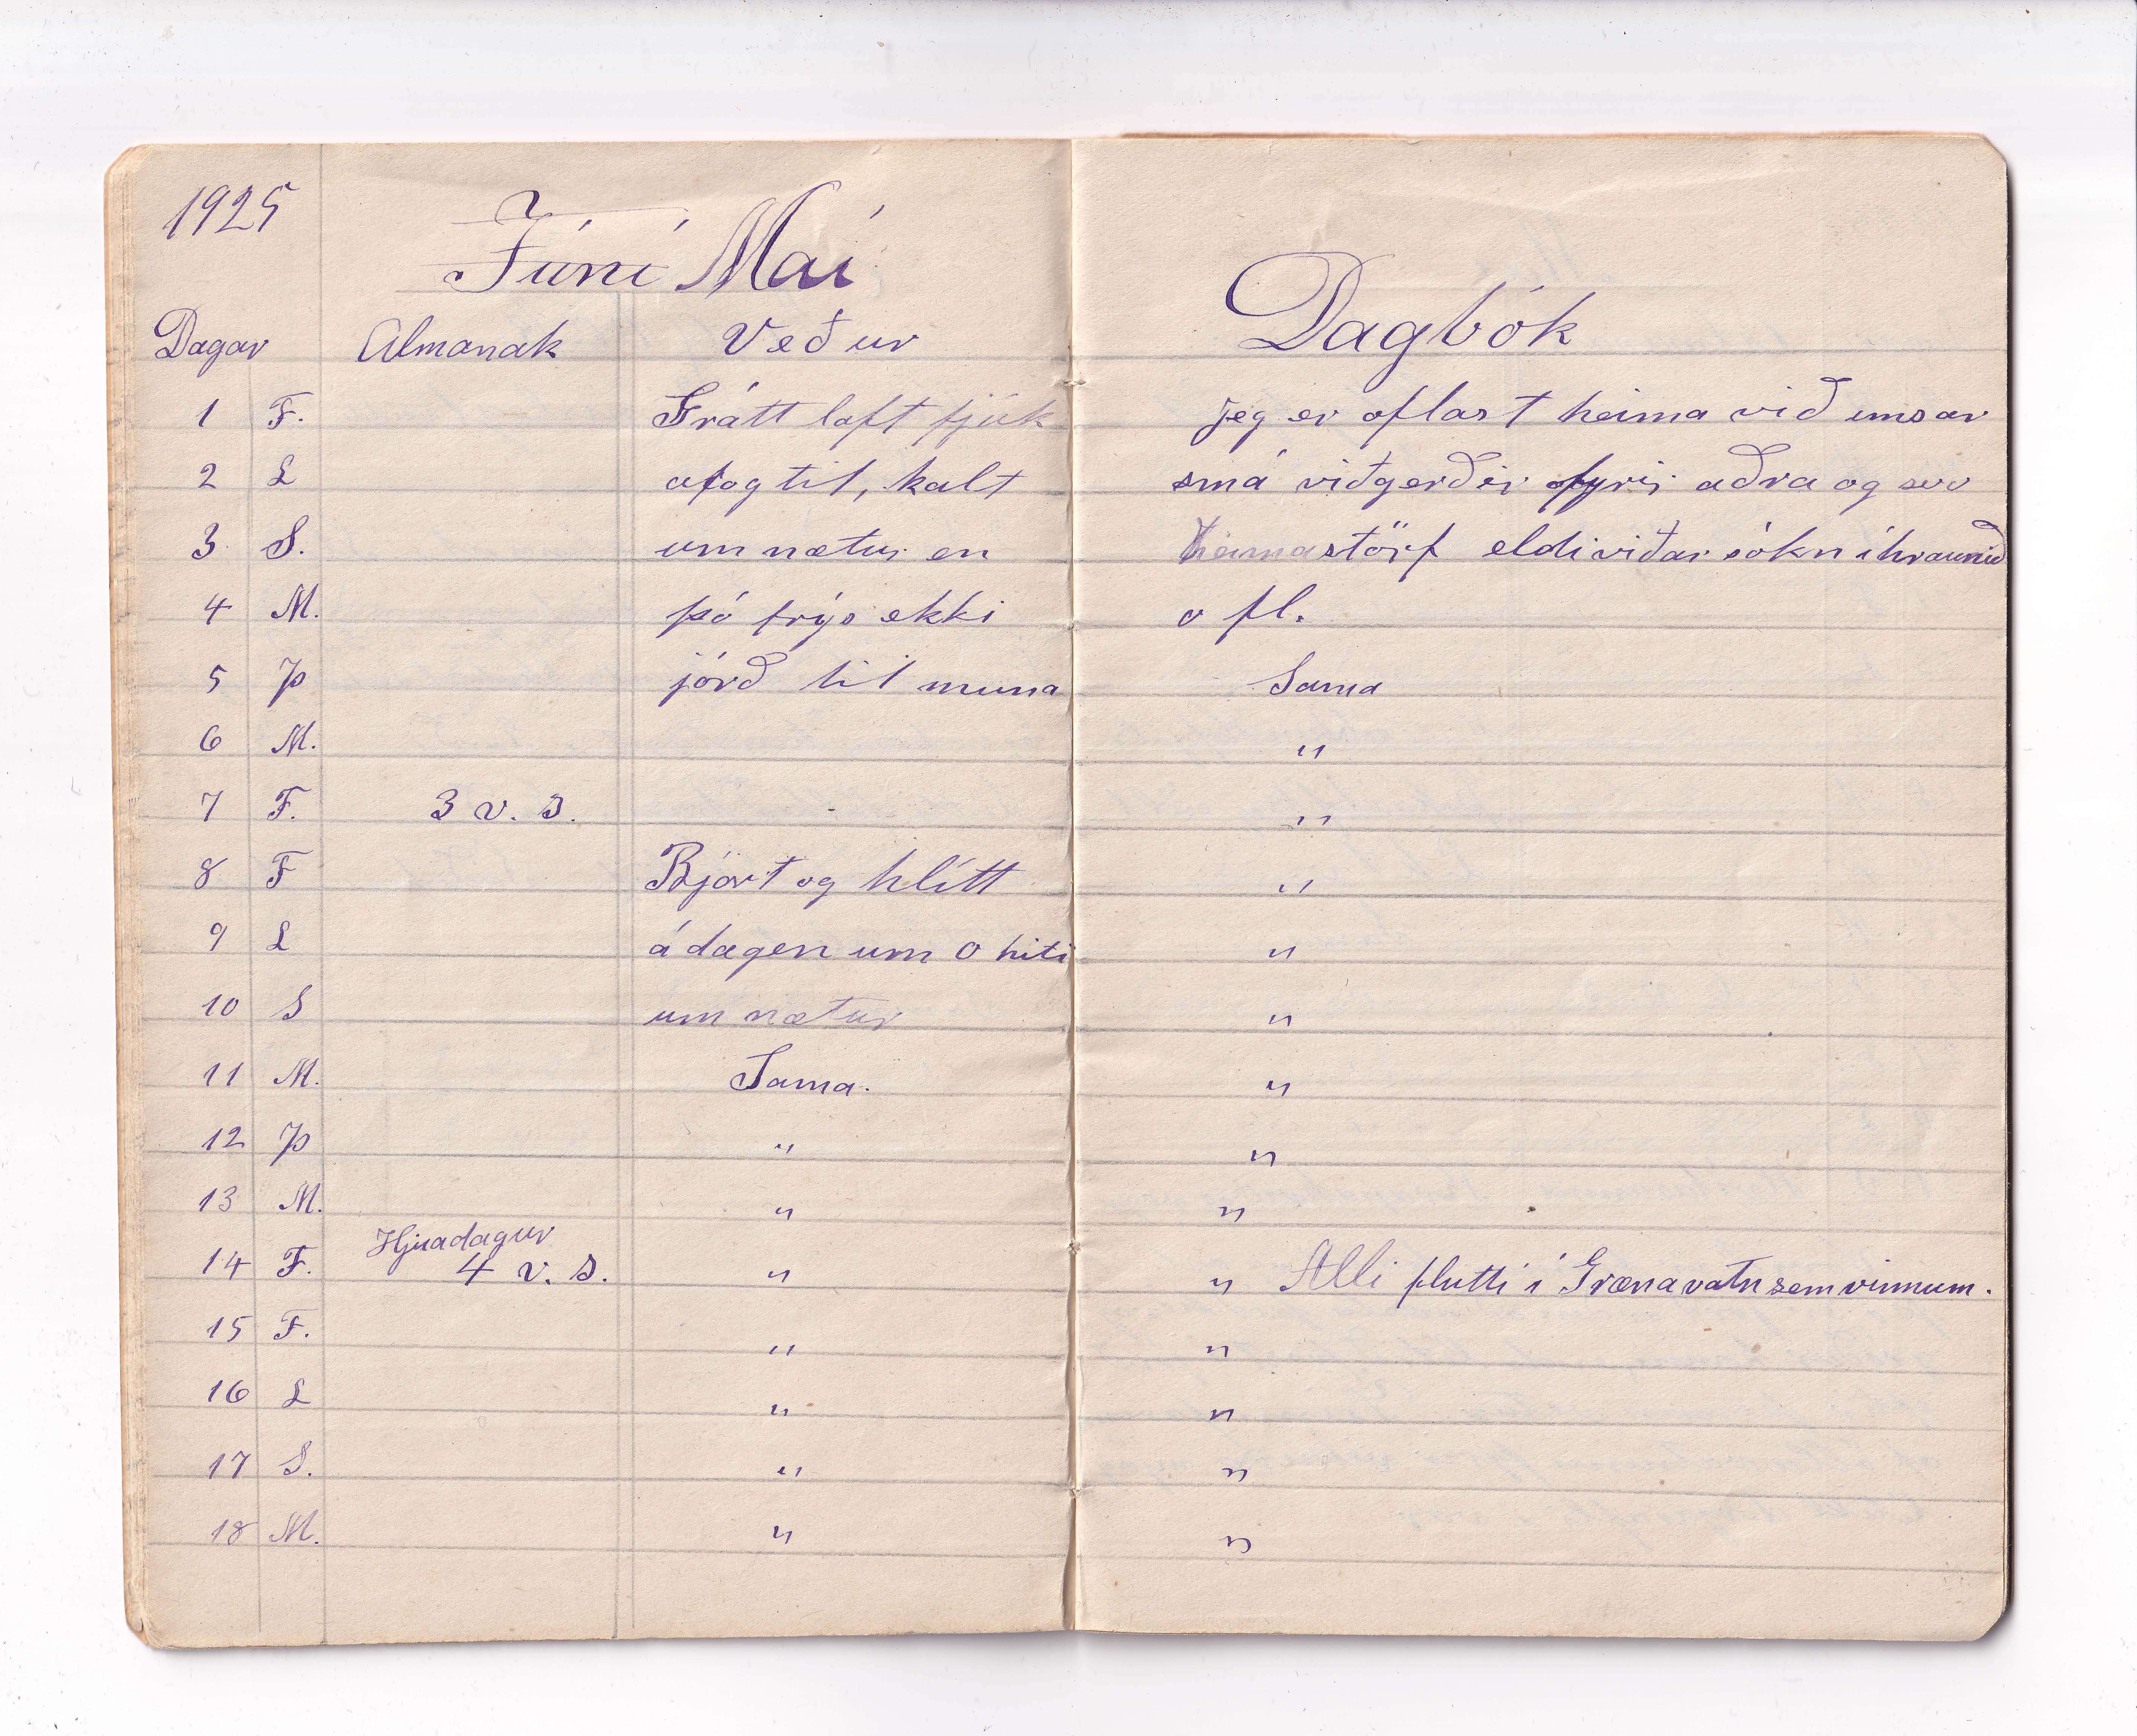 1925
Júní Maí
Dagar Almanak Veður
Dagbók
1 F. Grátt loft fjúk jeg er oflast heima við imsar
2 L af og til, kalt smá viðgerðir fyrir aðra og svo
3 S. um nætur en heimastörf eldiviðar sókn í hraunið
4 M. þó frýs ekki o fl.
5 Þ jörð til muna Sama
6 M. "
7 F. 3 v. s. "
8 F Bjart og hlítt "
9 L á dagen um 0 hiti "
10 S um nætur "
11 M. Sama. "
12 Þ " "
13 M. " "
Hjúadagur
14 F. 4 v. s. " " Alli flutti í Grænavatn sem vinnum.
15 F. " "
16 L " "
17 S. " "
18 M. " "